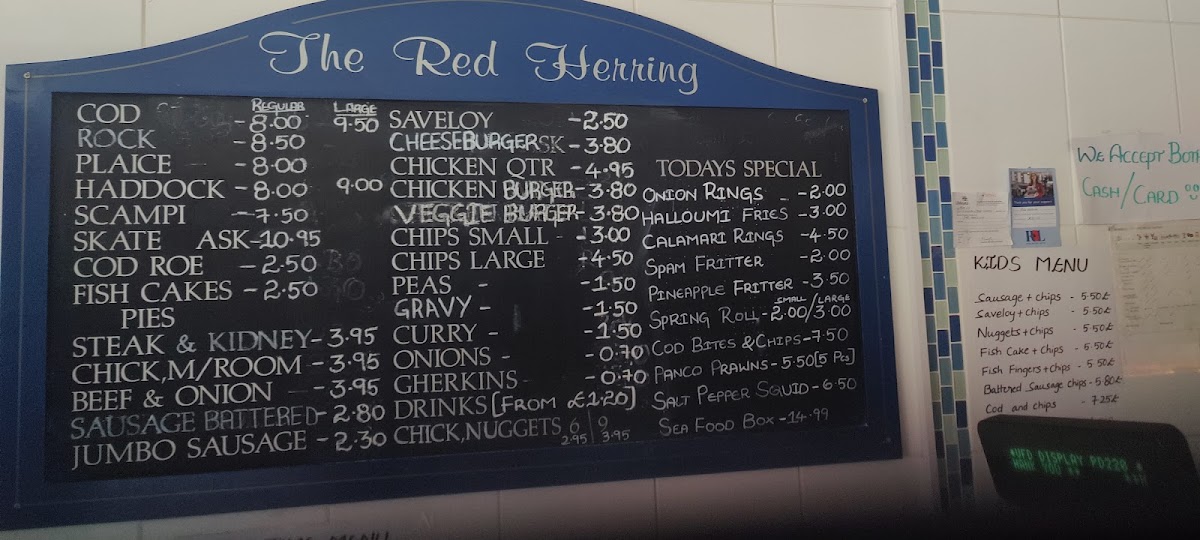 The Red Herring
REGULAR LARGE
COD -8.00 9.50
ROCK -8.50
PLAICE -8.00
HADDOCK -8.00 9.00
SCAMPI -7.50
SKATE ASK-10.95
COD ROE -2.50
FISH CAKES -2.50
PIES
STEAK & KIDNEY-3.95
CHICK,M/ROOM -3.95
BEEF & ONION -3.95
SAUSAGE BATTERED-2.80
JUMBO SAUSAGE -2.30
SAVELOY -2.50
CHEESEBURGER SK -3.80
CHICKEN QTR -4.95
CHICKEN BURGER-3.80
VEGGIE BURGER-3.80
CHIPS SMALL -3.00
CHIPS LARGE -4.50
PEAS - -1.50
GRAVY - -1.50
CURRY - -1.50
ONIONS - -0.70
GHERKINS - -0.70
DRINKS [FROM £1.20]
CHICK,NUGGETS 6 | 9
2.95 | 3.95
TODAYS SPECIAL
ONION RINGS -2.00
HALLOUMI FRIES -3.00
CALAMARI RINGS -4.50
SPAM FRITTER -2.00
PINEAPPLE FRITTER -3.50
SMALL/LARGE
SPRING ROLL-2.00/3.00
COD BITES & CHIPS-7.50
PANCO PRAWNS-5.50[5 Pcs]
SALT PEPPER SQUID-6.50
SEA FOOD BOX -14.99
WE ACCEPT BOTH
CASH/CARD
KIDS MENU
Sausage + chips - 5.50£
Saveloy + chips - 5.50£
Nuggets + chips - 5.50£
Fish Cake + chips - 5.50£
Fish Fingers + chips - 5.50£
Battered Sausage chips - 5.80£
Cod and chips - 7.25£
VFD DISPLAY PD220
MENU